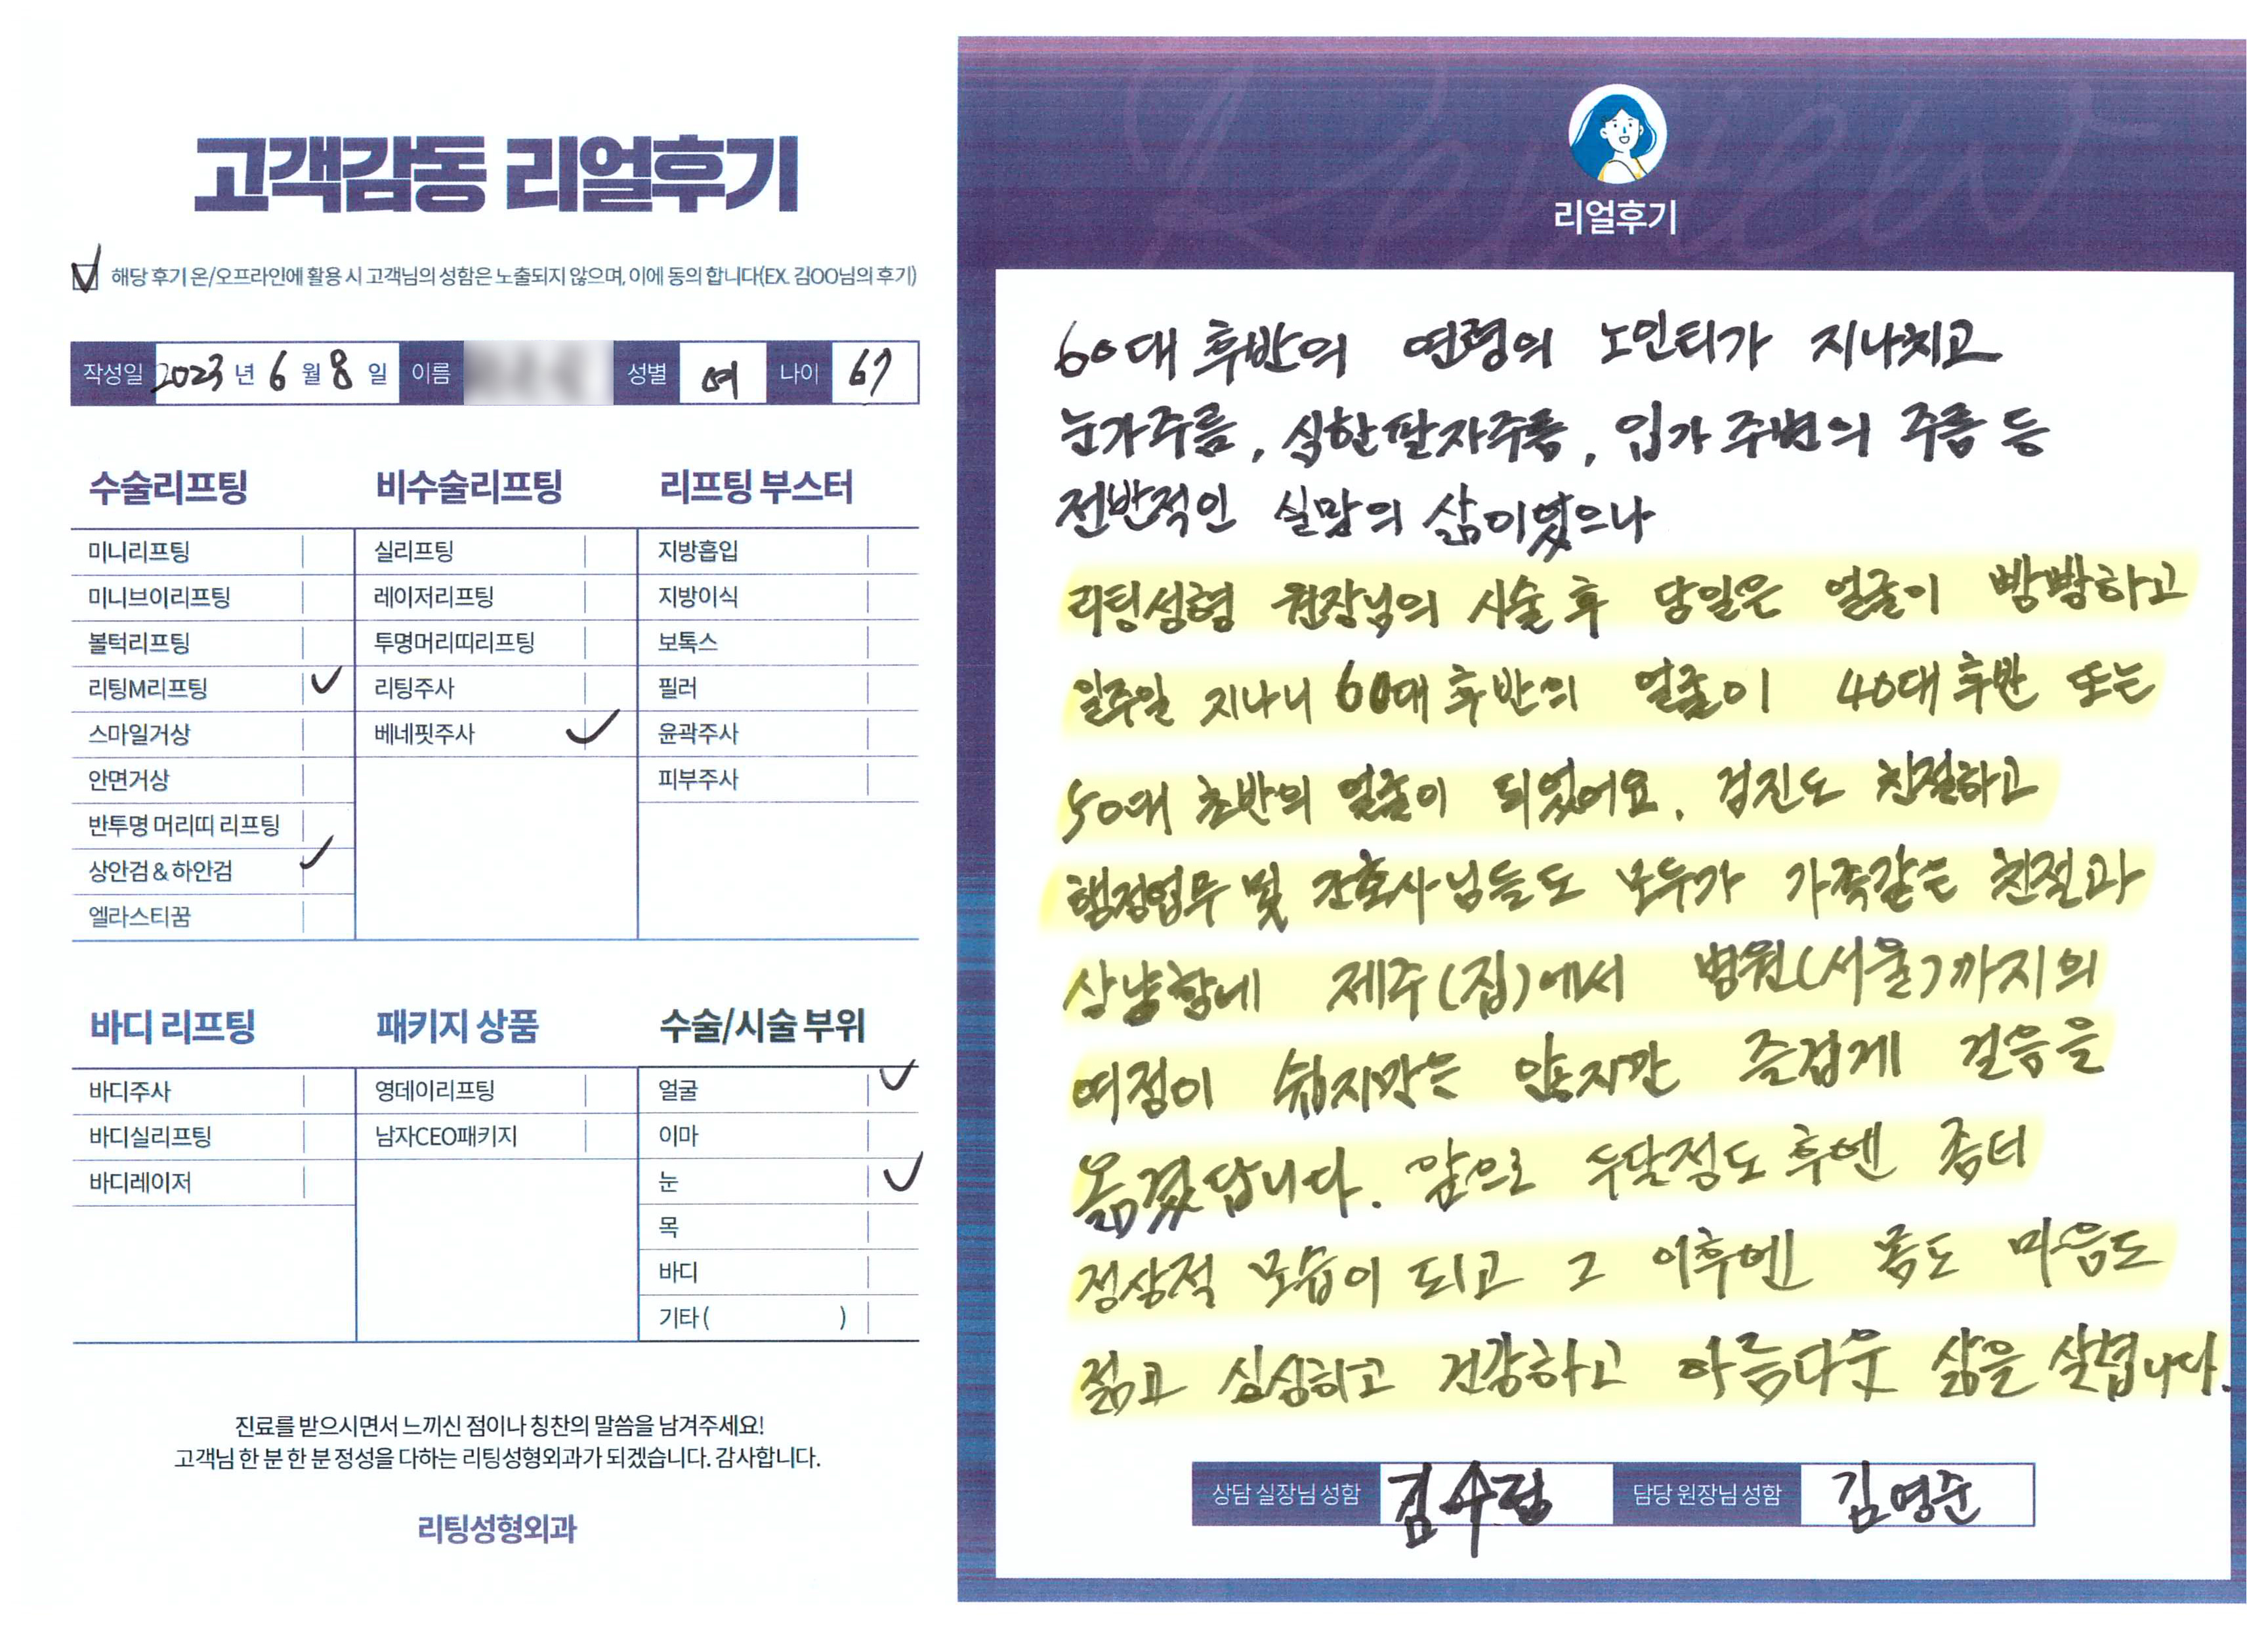 고객감동 리얼후기
해당 후기 온/오프라인에 활용 시 고객님의 성함은 노출되지 않으며, 이에 동의 합니다(EX. 김OO님의 후기)
작성일 2023 년 6 월 8 일 이름 성별 여 나이 67
수술리프팅
미니리프팅
미니브이리프팅
볼턱리프팅
리팅M리프팅
스마일거상
안면거상
반투명 머리띠 리프팅
상안검 & 하안검
엘라스티꿈
비수술리프팅
실리프팅
레이저리프팅
투명머리띠리프팅
리팅주사
베네핏주사
리프팅 부스터
지방흡입
지방이식
보톡스
필러
윤곽주사
피부주사
바디 리프팅
바디주사
바디실리프팅
바디레이저
패키지 상품
영데이리프팅
남자CEO패키지
수술/시술 부위
얼굴
이마
눈
목
바디
기타 ( )
진료를 받으시면서 느끼신 점이나 칭찬의 말씀을 남겨주세요!
고객님 한 분 한 분 정성을 다하는 리팅성형외과가 되겠습니다. 감사합니다.
리팅성형외과
Review
리얼후기
60대 후반의 연령의 노인티가 지나치고
눈가주름, 심한팔자주름, 입가 주변의 주름 등
전반적인 실망의 삶이였으나
리팅성형 원장님의 시술 후 당일은 얼굴이 빵빵하고
일주일 지나니 60대 후반의 얼굴이 40대 후반 또는
50대 초반의 얼굴이 되었어요. 검진도 친절하고
행정업무 및 간호사님들도 모두가 가족같은 친절과
상냥함에 제주(집)에서 병원(서울)까지의
여정이 쉽지만은 않지만 즐겁게 걸음을
옮겼답니다. 앞으로 두달정도 후엔 좀더
정상적 모습이 되고 그 이후엔 몸도 마음도
젊고 싱싱하고 건강하고 아름다운 삶을 살렵니다.
상담 실장님 성함 김수정 담당 원장님 성함 김영준